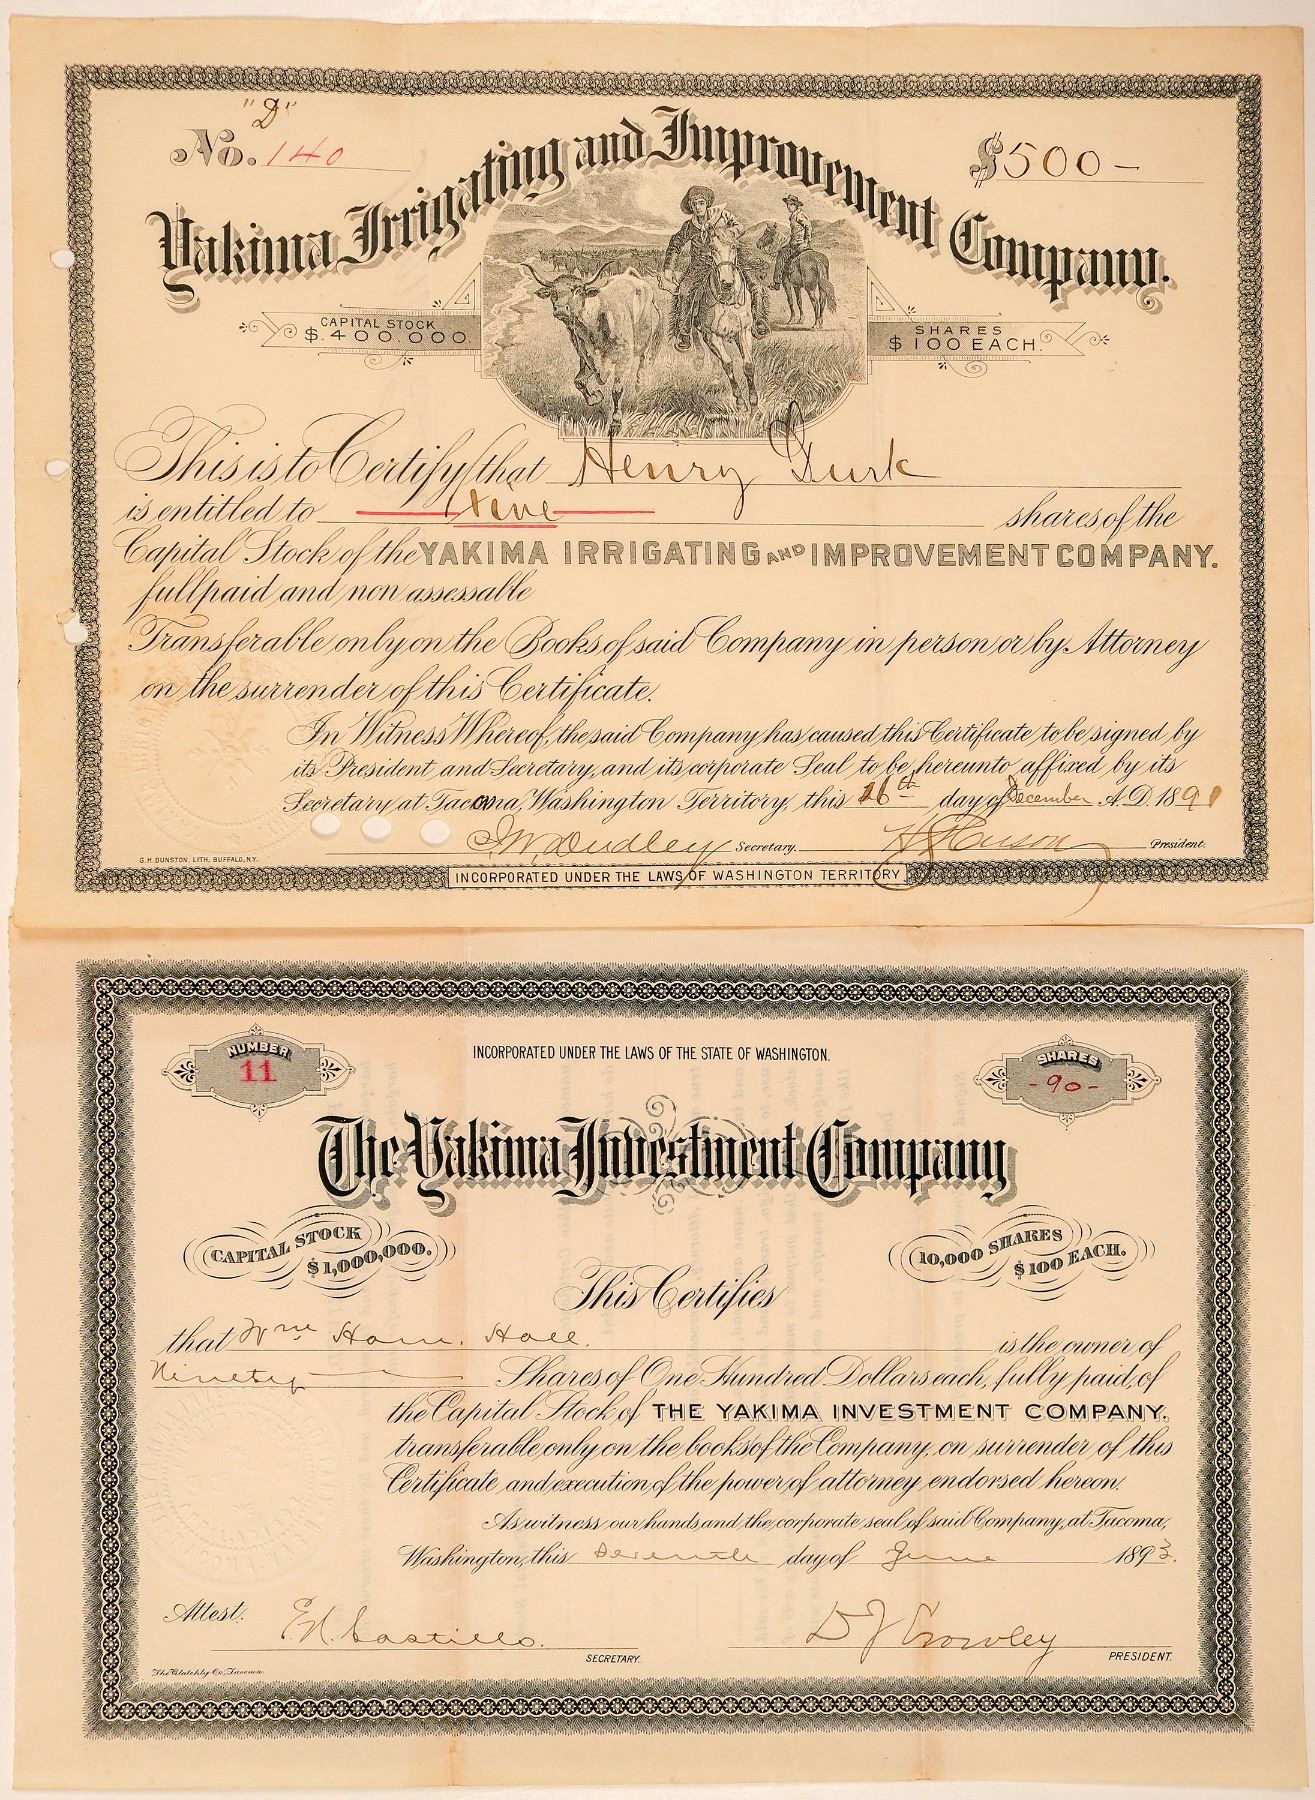 "D"
No. 140
$500-
Yakima Irrigating and Improvement Company.
CAPITAL STOCK
$.400.000.
SHARES
$100 EACH.
This is to Certify that Henry Turk
is entitled to five shares of the
Capital Stock of the YAKIMA IRRIGATING AND IMPROVEMENT COMPANY.
full paid and non assessable
Transferable only on the Books of said Company in person or by Attorney
on the surrender of this Certificate.
In Witness Whereof, the said Company has caused this Certificate to be signed by
its President and Secretary, and its corporate Seal to be hereunto affixed by its
Secretary at Tacoma, Washington Territory, this 26th day of December A.D. 1891
Dudley Secretary. President.
G.H. DUNSTON, LITH, BUFFALO, N.Y.
INCORPORATED UNDER THE LAWS OF WASHINGTON TERRITORY.
NUMBER
11
INCORPORATED UNDER THE LAWS OF THE STATE OF WASHINGTON.
SHARES
-90-
The Yakima Investment Company
CAPITAL STOCK
$1,000,000.
10,000 SHARES
$100 EACH.
This Certifies
that Wm Ham. Hall. is the owner of
Ninety Shares of One Hundred Dollars each, fully paid, of
the Capital Stock of THE YAKIMA INVESTMENT COMPANY.
transferable only on the books of the Company, on surrender of this
Certificate and execution of the power of attorney endorsed hereon.
As witness our hands and the corporate seal of said Company, at Tacoma,
Washington, this Seventh day of June 1893.
Attest. E.N. Castillo. D J Crowley
SECRETARY. PRESIDENT.
The Blatchly Co, Tacoma.